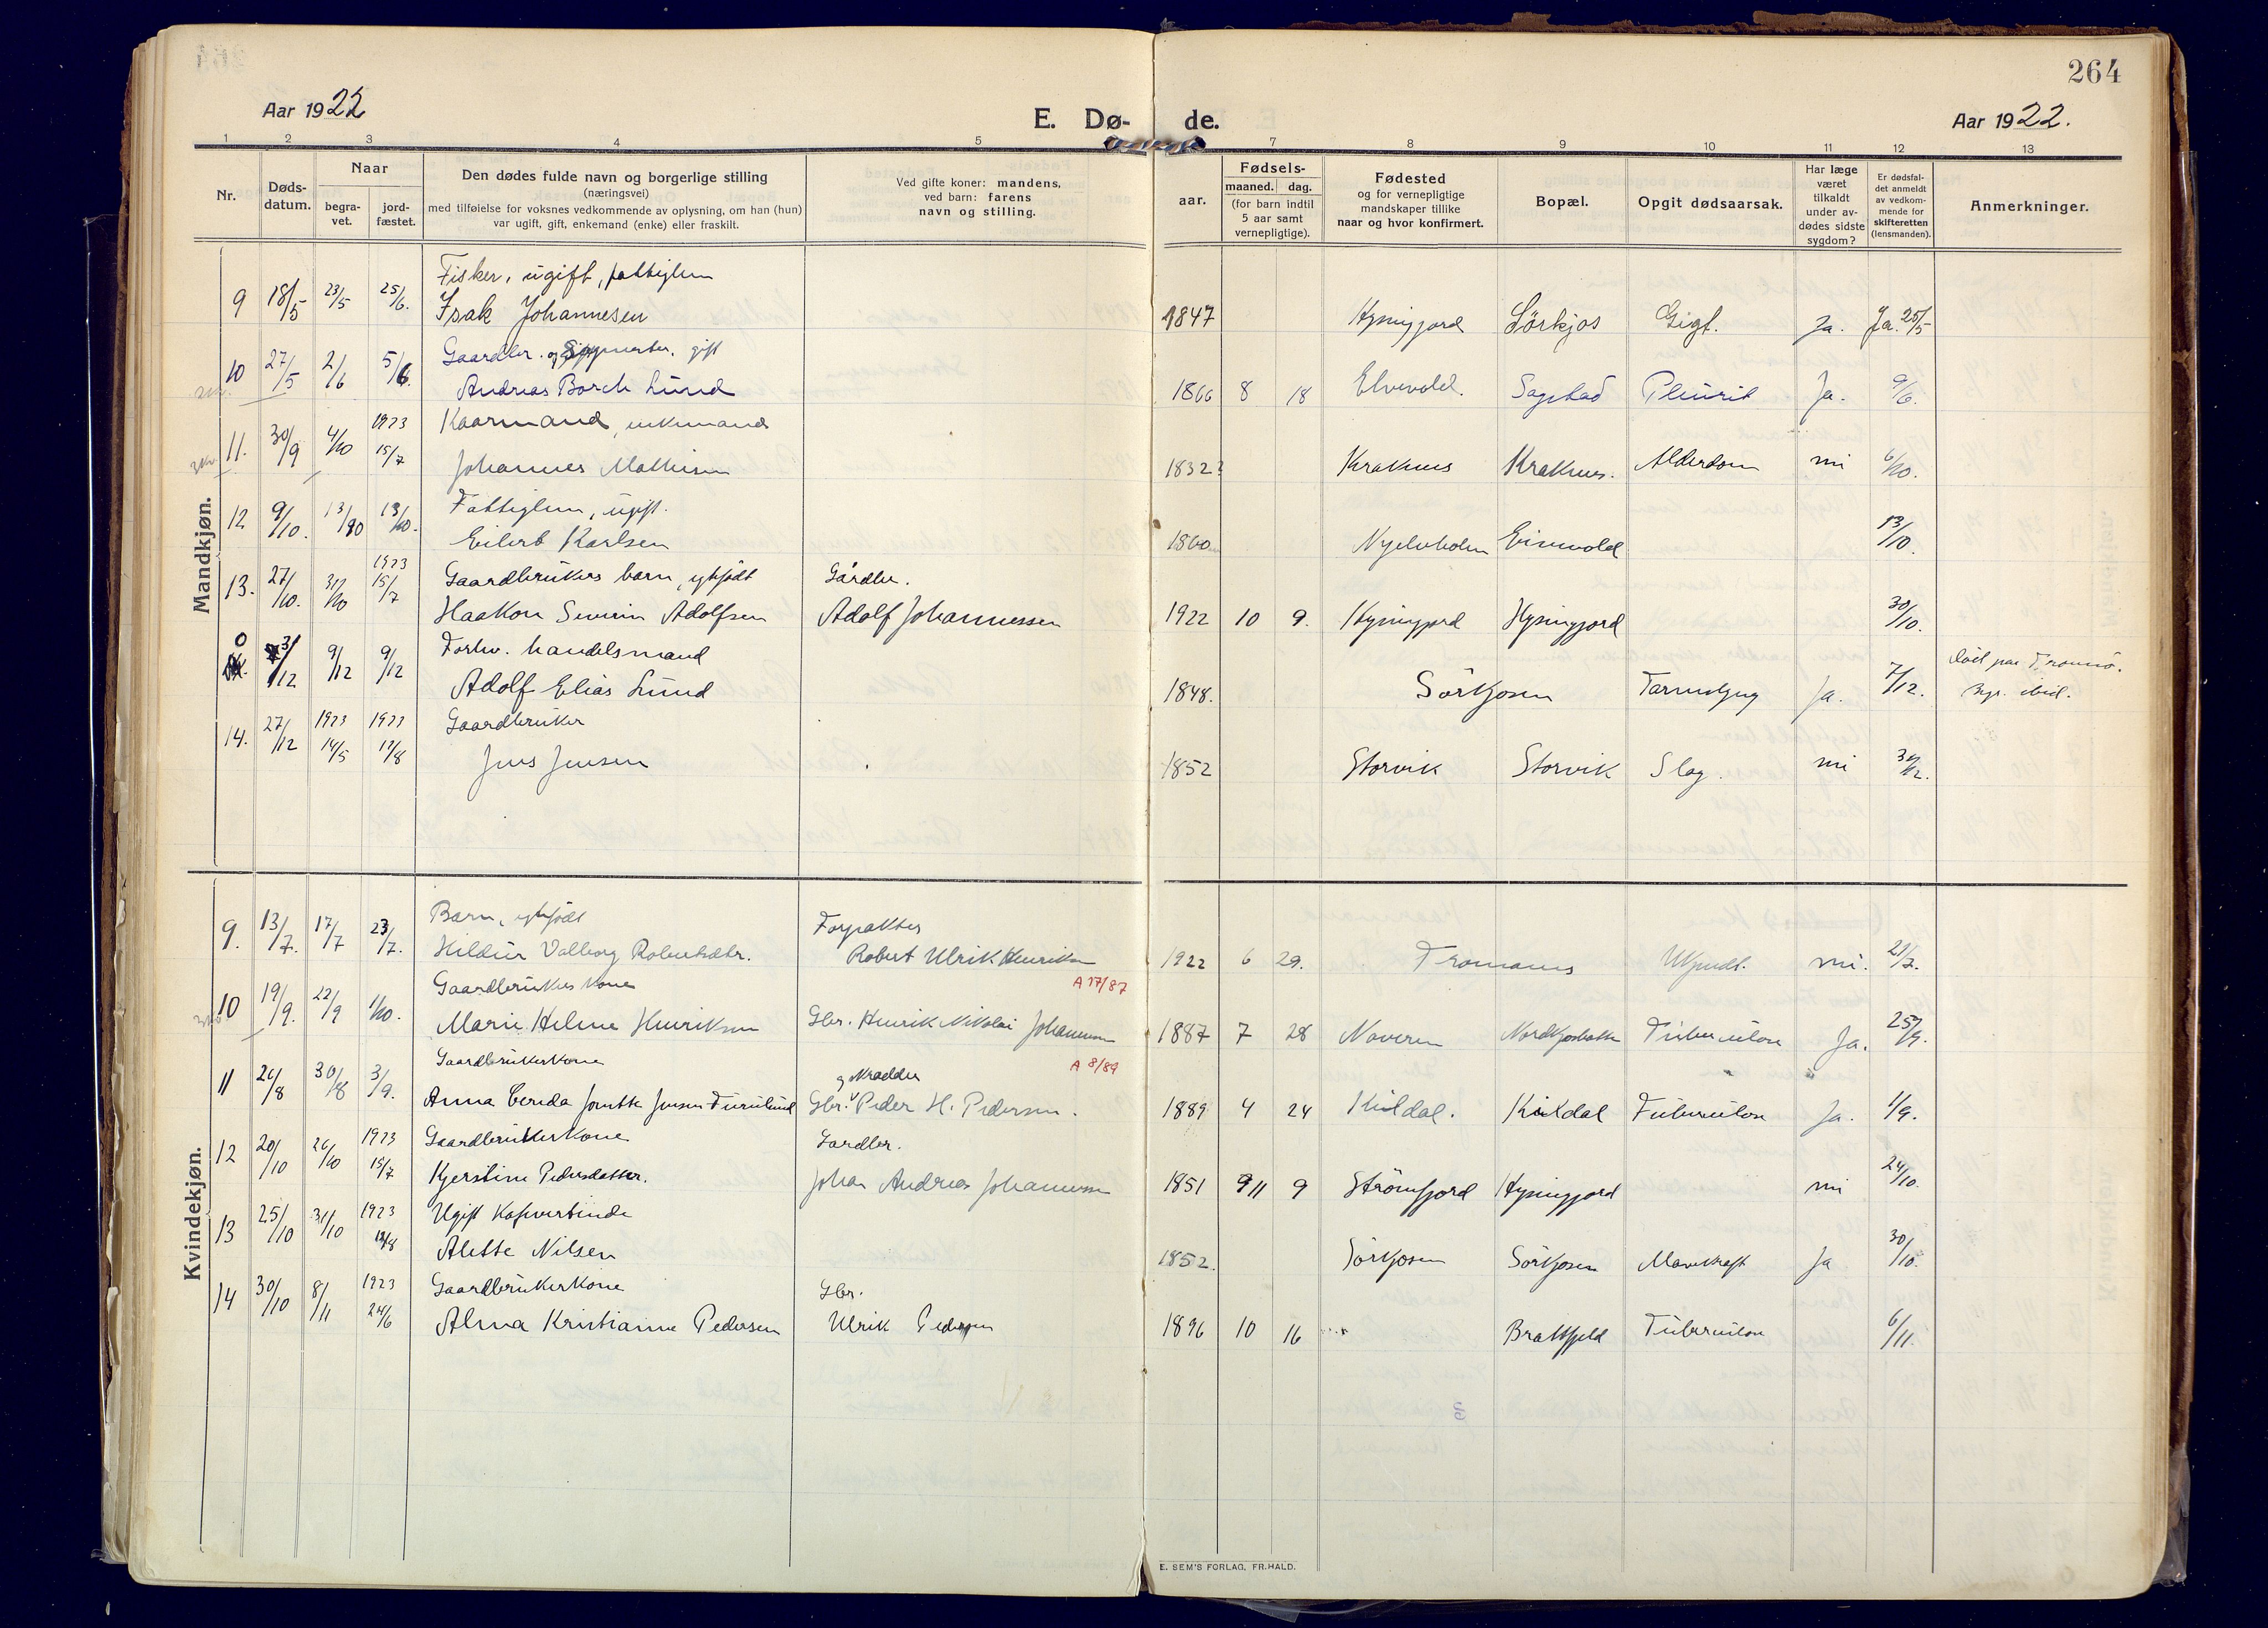 264
Aar 1922
E. Dø-
de.
Aar 1922.
1 2 3 4 5 7 8 9 10 11 12 13
Nr.
Døds-
datum.
Naar
begra-
vet.
jord-
fæstet.
Den dødes fulde navn og borgerlige stilling
(næringsvei)
med tilføielse for voksnes vedkommende av oplysning, om han (hun)
var ugift, gift, enkemand (enke) eller fraskilt.
Ved gifte koner: mandens,
ved barn: farens
navn og stilling.
aar.
Fødsels-
maaned. dag.
(for barn indtil
5 aar samt
vernepligtige).
Fødested
og for vernepligtige
mandskaper tillike
naar og hvor konfirmert.
Bopæl.
Opgit dødsaarsak.
Har læge
været
tilkaldt
under av-
dødes sidste
sygdom?
Er dødsfal-
det anmeldt
av vedkom-
mende for
skifteretten
(lensmanden).
Anmerkninger.
Mandkjøn.
Fisker, ugift, fattiglem
9 18/5 23/5 25/6. Isak Johannesen 1847 Sörkjos Gigt. Ja. Ja. 25/5
Gaardbr. og gift
10 27/5 2/6 5/6. Andreas Borch Lund 1866 8 18 Elvevold. Sagstad Pleurit Ja. 9/6.
1923 Kaarmand, enkemand
11. 30/9 4/10 15/7 Johannes Mathisen 1832? Kraknes Kraknes. Alderdom nei 6/10.
Fattiglem, ugift.
12 9/10. 13/10 13/10. Eilert Karlsen 1860 13/10.
1923 Gaardbrukers barn, egtefödt Gårdbr.
13. 27/10. 31/10 15/7 Haakon Severin Adolfsen Adolf Johannessen 1922 10 9. 30/10.
0 Forhv. handelsmand död paa Tromsö.
3/12 9/12 9/12 Adolf Elias Lund 1848. Sörkjosen Tarmslyng Ja. 7/12. Begr. ibid.
1923 1923 Gaardbruker
14. 27/12 14/5 12/8 Jens Jensen 1852 Storvik Storvik Slag. nei 30/12.
Kvindekjøn.
Barn, egtefödt Forpakter
9. 13/7. 17/7 23/7. Hildur Valborg Robertsdtr. Robert Ulrik Henriksen 1922 6 29. nei. 21/7.
Gaardbrukers kone A 17/87
10 19/9. 22/9 1/10. Marie Helene Henriksen Gbr. Henrik Nikolai Johannesen 1887 7 28 Naveren Nordkjosbotn Tuberculose Ja. 25/9.
Gaardbrukerkone A 8/89
og skrædder
11 26/8 30/8 3/9. Anna Jensen Furulund Gbr. Peder H. Pedersen. 1889 4 24 Kitdal. Kitdal Tuberculose Ja. 1/9.
1923 Gaardbrukerkone Gardbr.
12 20/10 26/10 15/7 Kjerstine Pedersdatter. Johan Andreas Johannessen 1851 11 9 Strömfjord nei 24/10.
1923 Ugift
13 25/10 31/10 12/8 Alette Nilsen 1852. Sörkjosen Sörkjosen Mavekræft Ja 30/10.
1923 Gaardbrukerkone Gbr.
14 30/10 8/11 24/6 Alma Kristianne Pedersen Ulrik Pedersen 1896 10 16 Brattfjeld Tuberculose 6/11.
E. SEM'S FORLAG, FR.HALD.